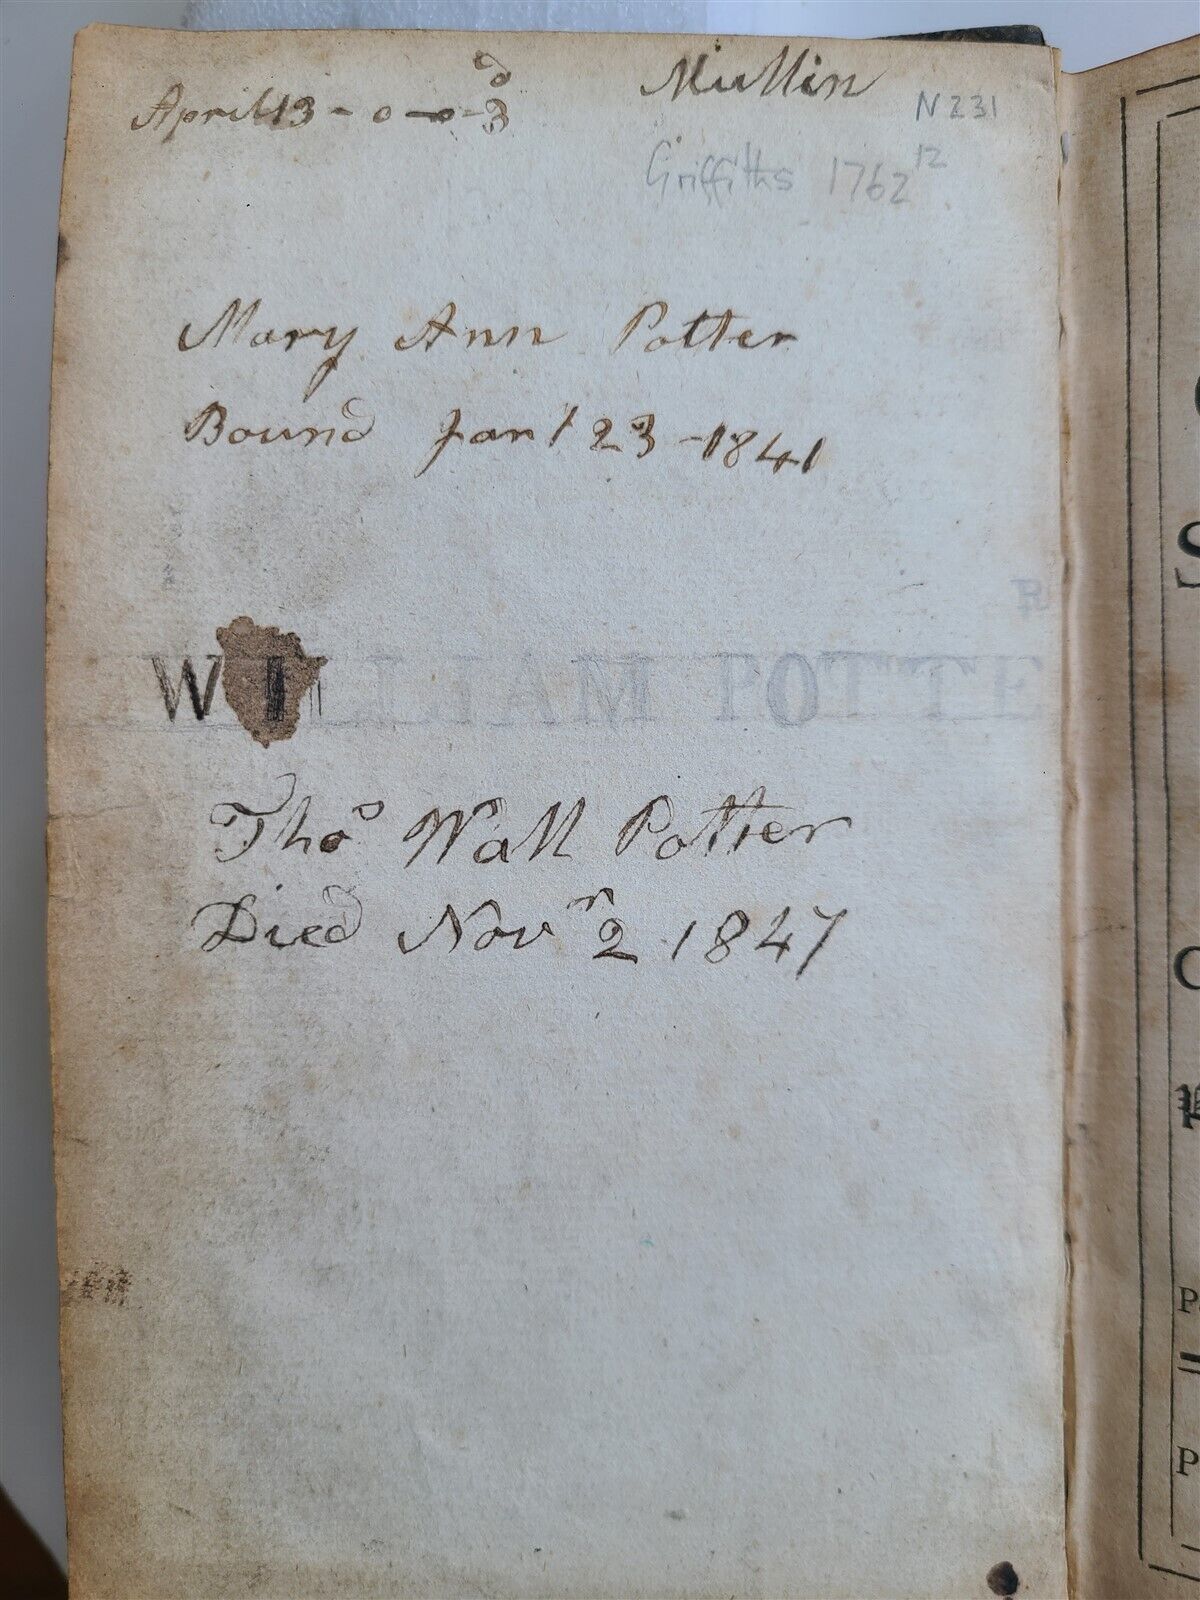 April 13 - 0 - 0 - 3 d
Mullin
N 231
Griffiths 1762 12
Mary Ann Potter
Bound Jan 1 23 - 1841
WILLIAM POTTE
Thos Wall Potter
Died Novr 2 1847
P
P